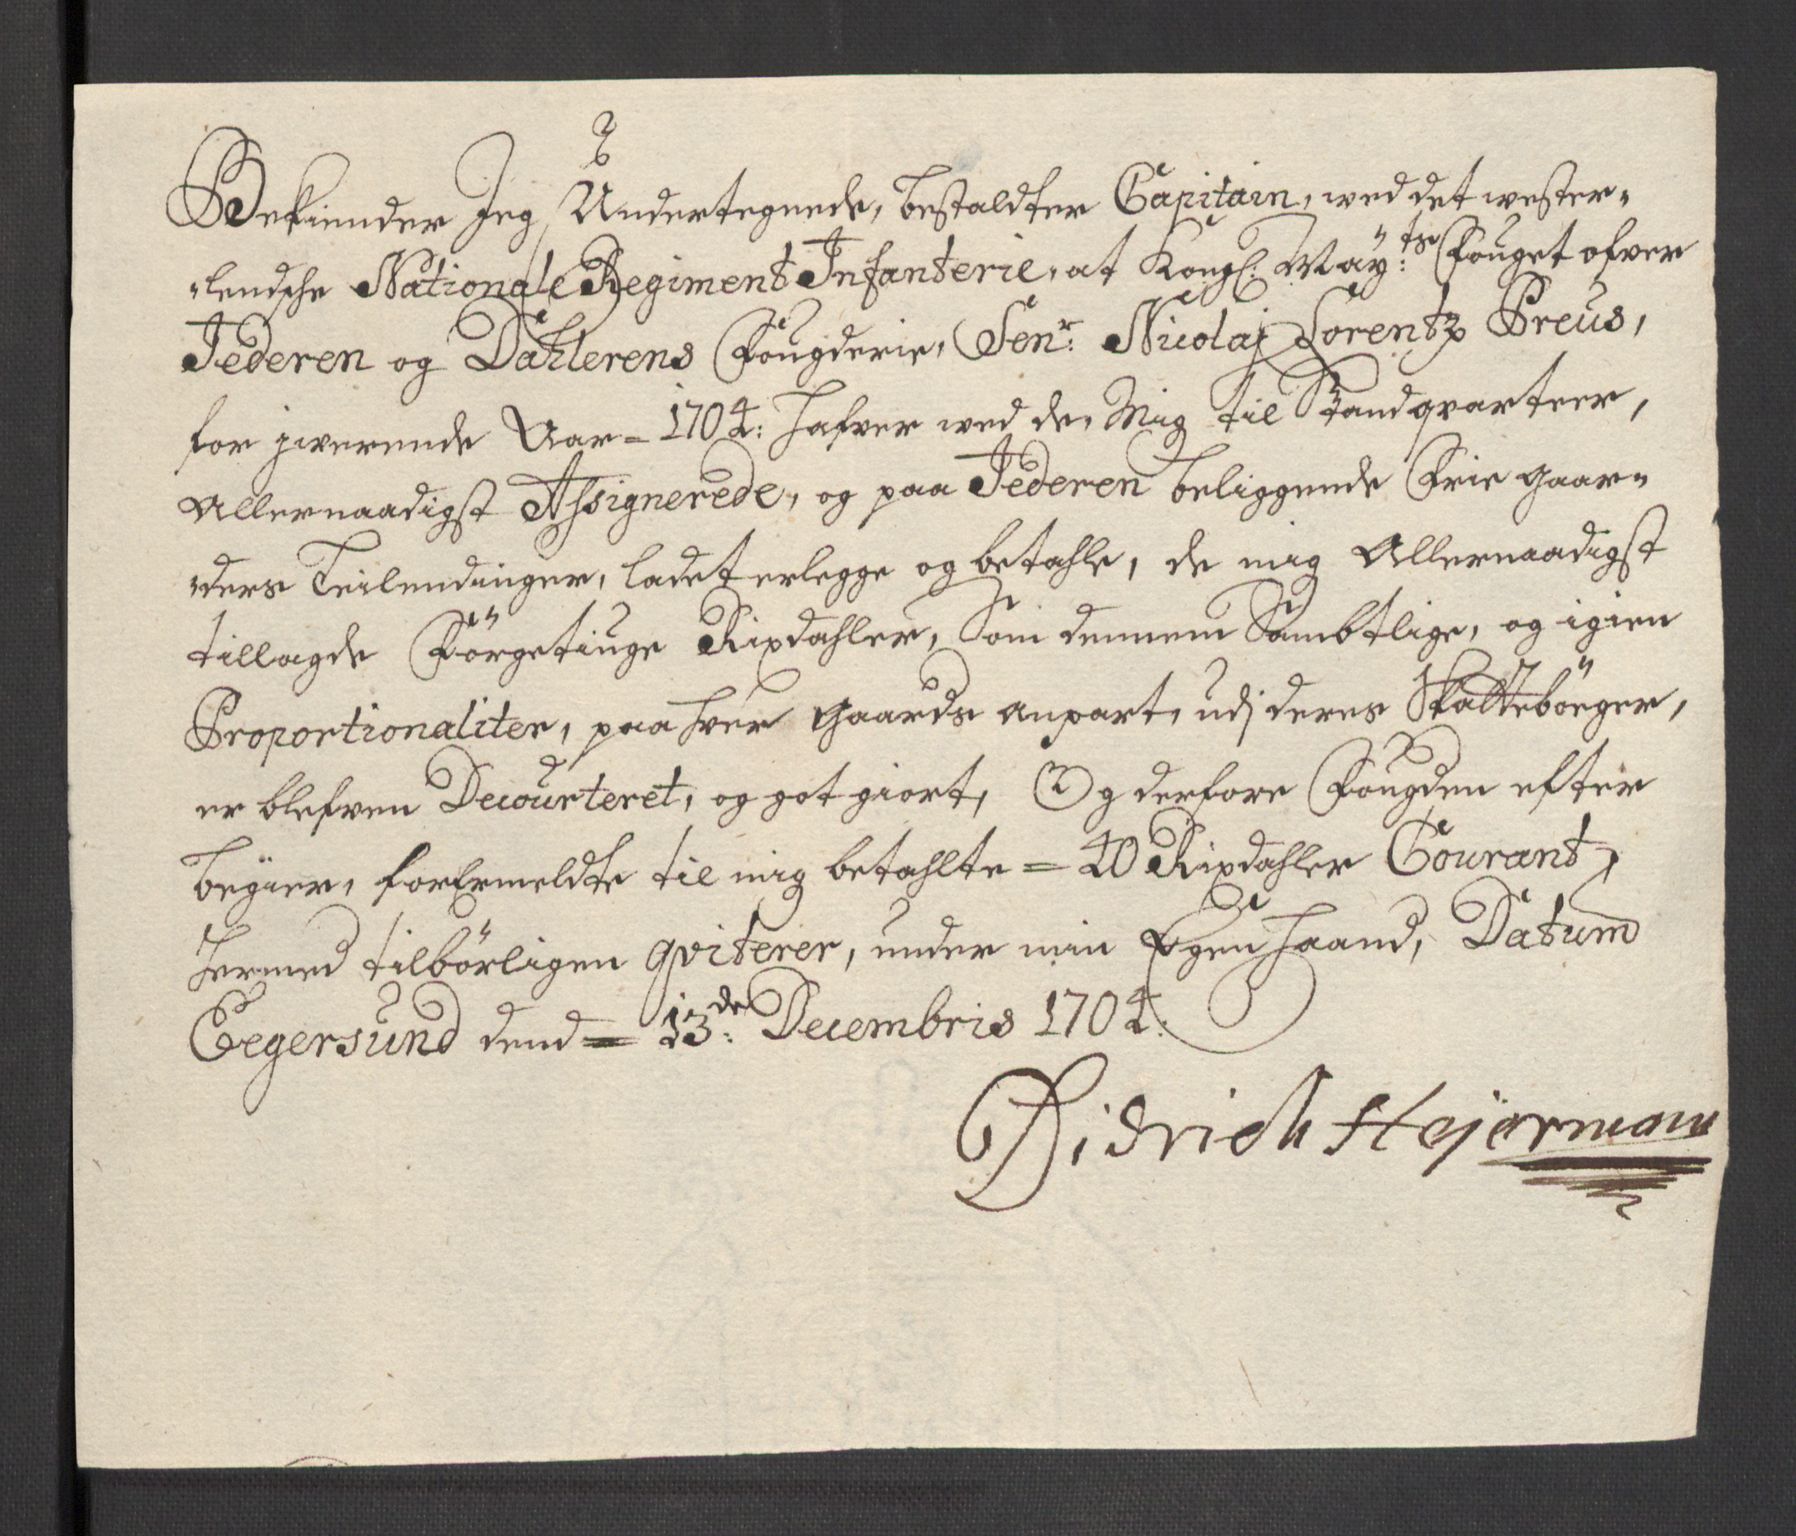 Bekiender Jeg Undertegnede, bestaldter Capitain, wed det wester-
-lendsche Nationale Regiment Infanterie, at Kongl: May:ts Fouget ofver
Jederen og Dahlerens Fougderie, Senr: Nicolaj Lorentz Preus,
for jwerende Aar = 1704: hafver wed de, Mig til Standqvarteer,
Allernaadigst Assignerede, og paa Jederen beliggende Frie gaar-
-ders Leilendinger, ladet erlegge og betahle, de mig Allernaadigst
tillagde Förgetiuge Rixdahler, Som dennem Sambtlige, og igien
Proportionaliter, paa hver gaards anpart, udj deres Skatteböger,
er blefven Decourteret, og got giort, Og derfore Fougden efter
begier, forErmeldte til mig betahlte = 40 Rixdahler Courant,
hermed tilbörligen qviterer, under min Egen haand, Datum
Eegersund dend = 13de: Decembris 1704.
Didrich Hejerman